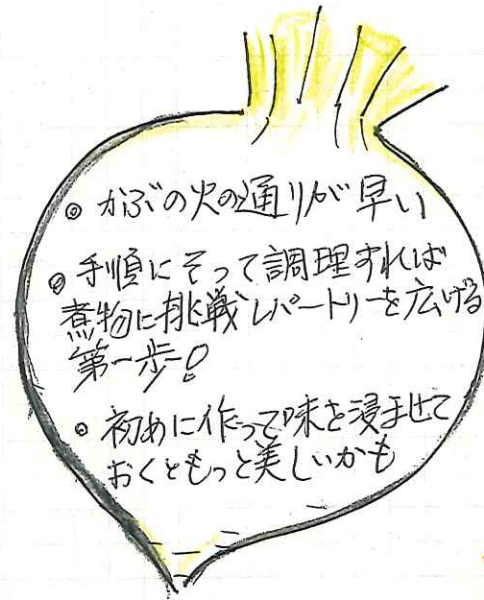 ◎ かぶの火の通りが早い
◎ 手順にそって調理すれば
煮物に挑戦レパートリーを広げる
第一歩!
◎ 初めに作って味を浸ませて
おくともっと美しいかも